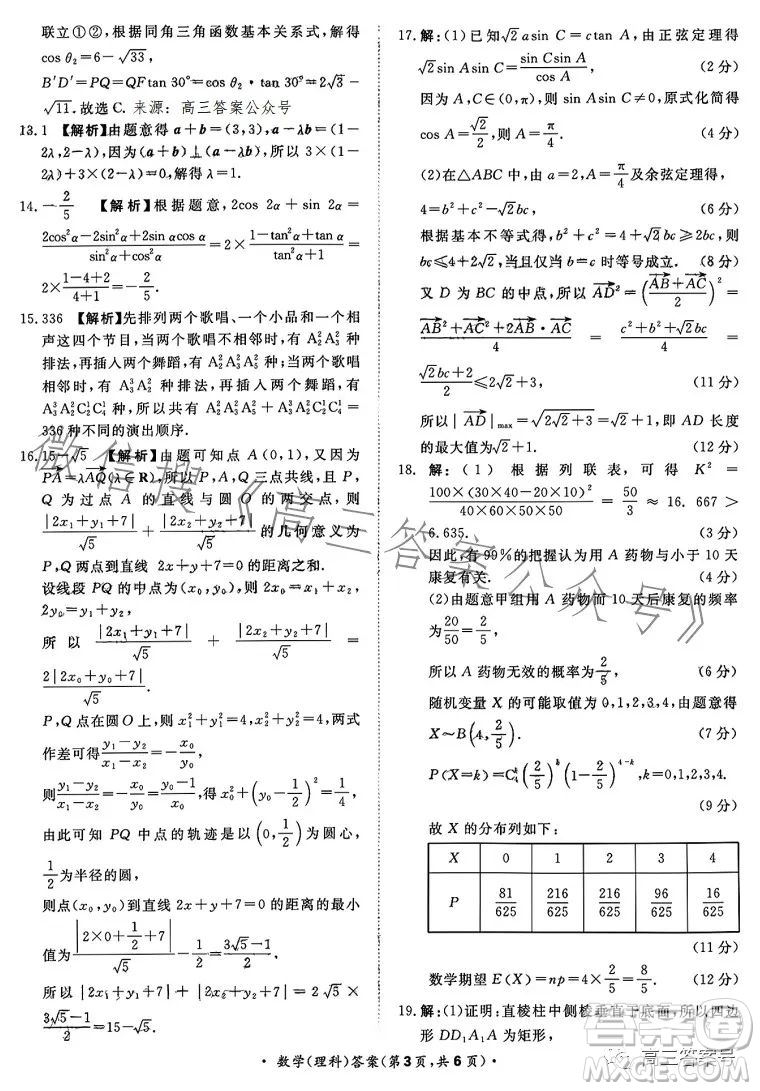 联立①②,根据同角三角函数基本关系式,解得
cos θ₂=6-√33,
B′D′=PQ=QFtan 30°=cos θ₂·tan 30°=2√3-
√11.故选C. 来源:高三答案公众号
13.1 【解析】由题意得 a+b=(3,3),a-λb=(1-
2λ,2-2λ),因为(a+b)⊥(a-λb),所以 3×(1-
2λ)+3×(2-2λ)=0,解得 λ=1.
14.-2/5 【解析】根据题意,2cos 2α+sin 2α=
(2cos²α-2sin²α+2sin αcos α)/(sin²α+cos²α)=2×(1-tan²α+tan α)/(tan²α+1)=
2×(1-4+2)/(4+1)=-2/5.
15.336 【解析】先排列两个歌唱、一个小品和一个相
声这四个节目,当两个歌唱不相邻时,有 A₂²A₃² 种
排法,再插入两个舞蹈,有 A₂²A₃²A₅² 种;当两个歌唱
相邻时,有 A₃³A₂² 种排法,再插入两个舞蹈,有
A₃³A₂²C₂¹C₄¹ 种,所以共有 A₂²A₃²A₅²+A₃³A₂²C₂¹C₄¹=
336 种不同的演出顺序.
16.15-√5 【解析】由题可知点 A(0,1),又因为
PA=λAQ(λ∈R),所以 P,A,Q 三点共线,且 P,
Q 为过点 A 的直线与圆 O 的两交点,则
|2x₁+y₁+7|/√5+|2x₂+y₂+7|/√5 的几何意义为
P,Q 两点到直线 2x+y+7=0 的距离之和.
设线段 PQ 的中点为(x₀,y₀),则 2x₀=x₁+x₂,
2y₀=y₁+y₂,
所以 |2x₁+y₁+7|/√5+|2x₂+y₂+7|/√5=
2|2x₀+y₀+7|/√5.
P,Q 点在圆 O 上,则 x₁²+y₁²=4,x₂²+y₂²=4,两式
作差可得(y₁-y₂)/(x₁-x₂)=-x₀/y₀,
则(y₁-y₂)/(x₁-x₂)=-x₀/y₀=(y₀-1)/x₀,得 x₀²+(y₀-1/2)²=1/4,
由此可知 PQ 中点的轨迹是以(0,1/2)为圆心,
1/2为半径的圆,
则点(x₀,y₀)到直线 2x+y+7=0 的距离的最小
值为|2×0+1/2+7|/√5-1/2=(3√5-1)/2,
所以|2x₁+y₁+7|+|2x₂+y₂+7|的最小值为2√5
×(3√5-1)/2=15-√5.
17.解:(1)已知√2asin C=ctan A,由正弦定理得
√2sin Asin C=sin Csin A/cos A, (2分)
因为 A,C∈(0,π),则 sin Asin C≠0,原式化简得
cos A=√2/2,则 A=π/4. (4分)
(2)在△ABC 中,由 a=2,A=π/4及余弦定理得,
4=b²+c²-√2bc, (6分)
根据基本不等式得,b²+c²=4+√2bc≥2bc,则
bc≤4+2√2,当且仅当 b=c 时等号成立. (8分)
又 D 为 BC 的中点,所以 AD²=((AB+AC)/2)²=
(AB²+AC²+2AB·AC)/4=(c²+b²+√2bc)/4=
(√2bc+2)/2≤2√2+3, (11分)
所以|AD|max=√(2√2+3)=√2+1,即 AD 长度
的最大值为√2+1. (12分)
18.解:(1)根据列联表,可得 K²=
100×(30×40-20×10)²/(40×60×50×50)=50/3≈16.667>
6.635. (3分)
因此,有 99%的把握认为用 A 药物与小于 10 天
康复有关. (4分)
(2)由题意甲组用 A 药物而 10 天后康复的频率
为20/50=2/5,
所以 A 药物无效的概率为2/5, (6分)
随机变量 X 的可能取值为 0,1,2,3,4,由题意得
X~B(4,2/5), (7分)
P(X=k)=C₄ᵏ(2/5)ᵏ(1-2/5)⁴⁻ᵏ,k=0,1,2,3,4.
(9分)
故 X 的分布列如下:
X 0 1 2 3 4
P 81/625 216/625 216/625 96/625 16/625
(11分)
数学期望 E(X)=np=4×2/5=8/5. (12分)
19.解:(1)证明:直棱柱中侧棱垂直于底面,所以四边
形 DD₁A₁A 为矩形,
·数学(理科)答案(第3页,共6页)·
微信搜《高三答案公众号》
高三答案号